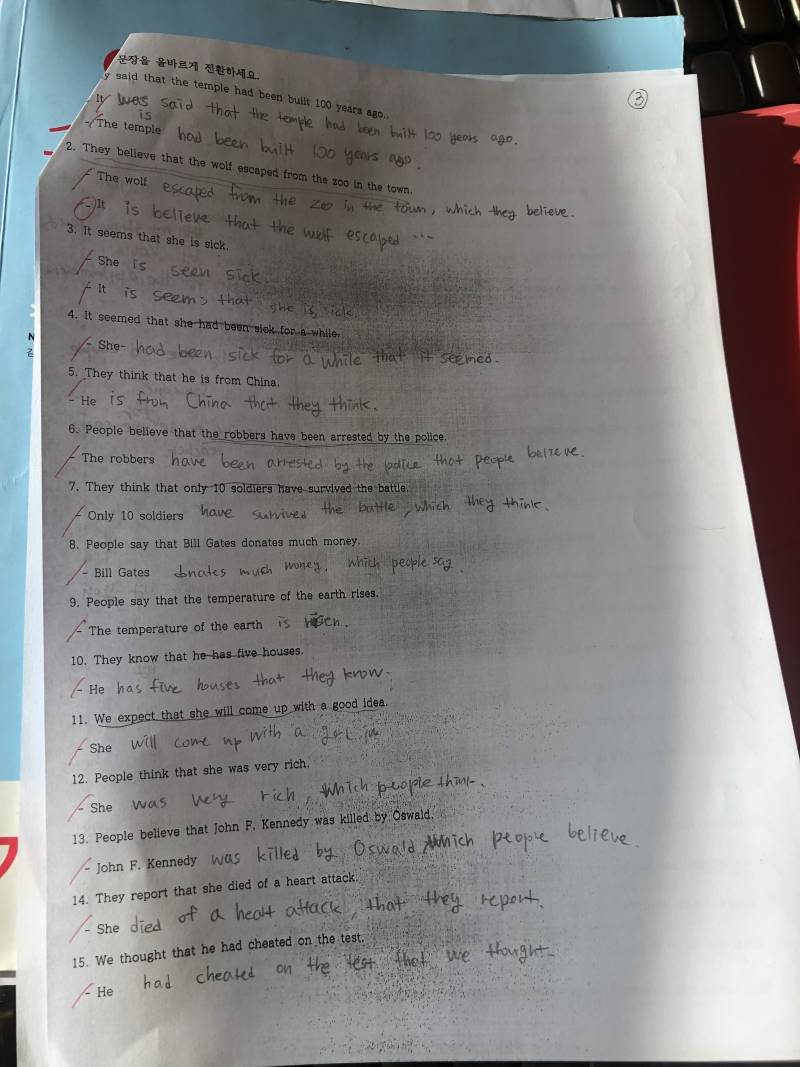 문장을 올바르게 전환하세요.
y said that the temple had been built 100 years ago..
③
- It was said that the temple had been built 100 years ago.
is
- The temple had been built 100 years ago.
2. They believe that the wolf escaped from the zoo in the town.
- The wolf escaped from the zoo in the town, which they believe.
- It is believe that the wolf escaped ...
3. It seems that she is sick.
- She is seen sick.
- It is seems that she is sick
4. It seemed that she had been sick for a while.
- She- had been sick for a while that it seemed.
5. They think that he is from China.
- He is from China that they think.
6. People believe that the robbers have been arrested by the police.
- The robbers have been arrested by the police that people believe.
7. They think that only 10 soldiers have survived the battle.
- Only 10 soldiers have survived the battle, which they think.
8. People say that Bill Gates donates much money.
- Bill Gates donates much money, which people say.
9. People say that the temperature of the earth rises.
- The temperature of the earth is risen.
10. They know that he has five houses.
- He has five houses that they know.
11. We expect that she will come up with a good idea.
- She will come up with a
12. People think that she was very rich.
- She was very rich, which people think.
13. People believe that John F. Kennedy was killed by Oswald.
- John F. Kennedy was killed by Oswald, which people believe.
14. They report that she died of a heart attack.
- She died of a heart attack, that they report.
15. We thought that he had cheated on the test.
- He had cheated on the test that we thought.